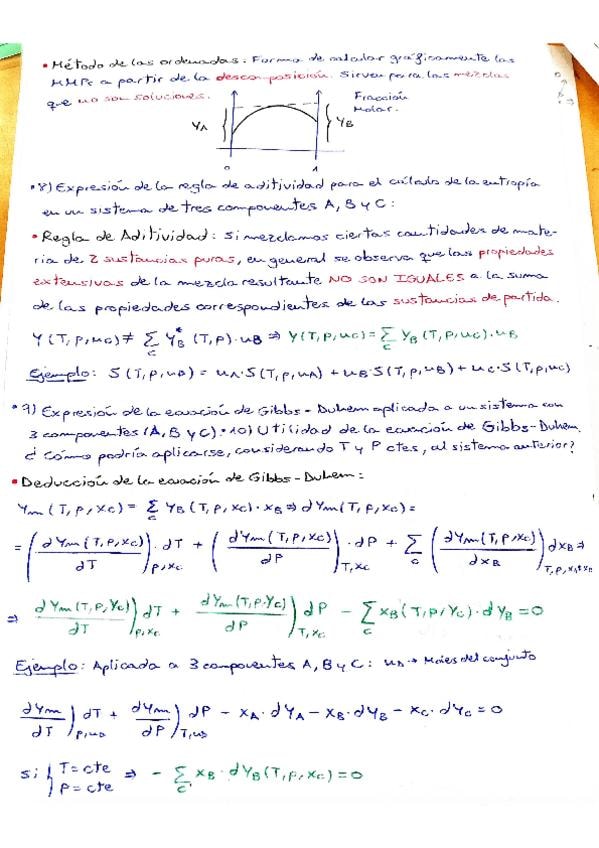 • Método de las ordenadas: Forma de calcular gráficamente las
MMPs a partir de la descomposición. Sirven para las mezclas
que no son soluciones.
Fracción
Molar.
YA
YB
0
1
• 8) Expresión de la regla de aditividad para el cálculo de la entropía
en un sistema de tres componentes A, B y C:
• Regla de Aditividad: Si mezclamos ciertas cantidades de mate-
ria de 2 sustancias puras, en general se observa que las propiedades
extensivas de la mezcla resultante NO SON IGUALES a la suma
de las propiedades correspondientes de las sustancias de partida.
Y(T,P,nC) ≠ ∑C YB* (T,P)·nB ⇒ Y(T,P,nC) = ∑C YB (T,P,nC)·nB
Ejemplo: S(T,P,nD) = nA·S(T,P,nA) + nB·S(T,P,nB) + nC·S(T,P,nC)
• 9) Expresión de la ecuación de Gibbs-Duhem aplicada a un sistema con
3 componentes (A, B y C). • 10) Utilidad de la ecuación de Gibbs-Duhem.
¿Cómo podría aplicarse, considerando T y P ctes, al sistema anterior?
• Deducción de la ecuación de Gibbs-Duhem:
Ym(T,P,xC) = ∑C YB(T,P,xC)·xB ⇒ dYm(T,P,xC) =
= (dYm(T,P,xC)/dT)P,xC · dT + (dYm(T,P,xC)/dP)T,xC · dP + ∑C (dYm(T,P,xC)/dxB) dxB ⇒
⇒ dYm(T,P,YC)/dT)P,xC dT + dYm(T,P,YC)/dP)T,xC dP - ∑C xB(T,P,YC)·dYB = 0
Ejemplo: Aplicada a 3 componentes A, B y C: nD → Moles del conjunto
dYm/dT)P,nD dT + dYm/dP)T,nD dP - xA·dYA - xB·dYB - xC·dYC = 0
Si: { T = cte
P = cte ⇒ - ∑C xB·dYB(T,P,xC) = 0